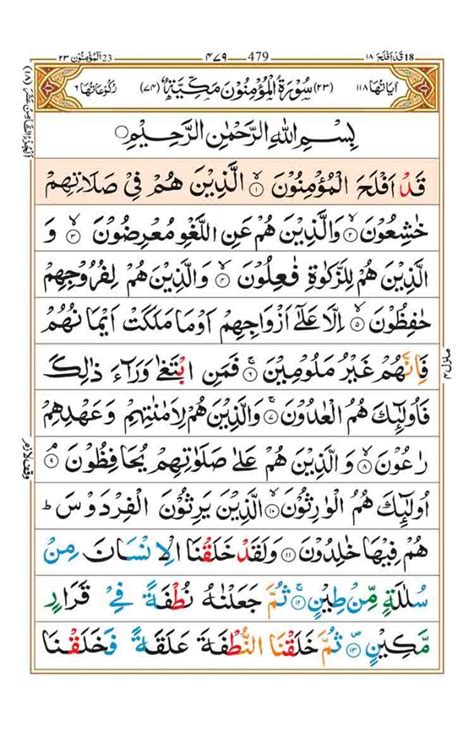 ٢٣ اَلْمُؤْمِنُوْن 23 ۴۷۹ 479 ١٨ قَدْ اَفْلَحَ 18
اٰيَاتُهَا ١١٨ (٢٣) سُوْرَةُ الْمُؤْمِنُوْنَ مَكِّيَّةٌ (٧٤) رُكُوْعَاتُهَا ٦
بِسْمِ اللّٰهِ الرَّحْمٰنِ الرَّحِيْمِ
قَدْ اَفْلَحَ الْمُؤْمِنُوْنَ ١ الَّذِيْنَ هُمْ فِىْ صَلَاتِهِمْ
خٰشِعُوْنَ ٢ وَالَّذِيْنَ هُمْ عَنِ اللَّغْوِ مُعْرِضُوْنَ ٣ وَ
الَّذِيْنَ هُمْ لِلزَّكٰوةِ فٰعِلُوْنَ ٤ وَالَّذِيْنَ هُمْ لِفُرُوْجِهِمْ
حٰفِظُوْنَ ٥ اِلَّا عَلٰٓى اَزْوَاجِهِمْ اَوْ مَا مَلَكَتْ اَيْمَانُهُمْ
فَاِنَّهُمْ غَيْرُ مَلُوْمِيْنَ ٦ فَمَنِ ابْتَغٰى وَرَآءَ ذٰلِكَ
فَاُولٰٓئِكَ هُمُ الْعٰدُوْنَ ٧ وَالَّذِيْنَ هُمْ لِاَمٰنٰتِهِمْ وَعَهْدِهِمْ
رٰعُوْنَ ٨ وَالَّذِيْنَ هُمْ عَلٰى صَلَوٰتِهِمْ يُحَافِظُوْنَ ٩
اُولٰٓئِكَ هُمُ الْوٰرِثُوْنَ ١٠ الَّذِيْنَ يَرِثُوْنَ الْفِرْدَوْسَ ط
هُمْ فِيْهَا خٰلِدُوْنَ ١١ وَلَقَدْ خَلَقْنَا الْاِنْسَانَ مِنْ
سُلٰلَةٍ مِّنْ طِيْنٍ ١٢ ثُمَّ جَعَلْنٰهُ نُطْفَةً فِىْ قَرَارٍ
مَّكِيْنٍ ١٣ ثُمَّ خَلَقْنَا النُّطْفَةَ عَلَقَةً فَخَلَقْنَا